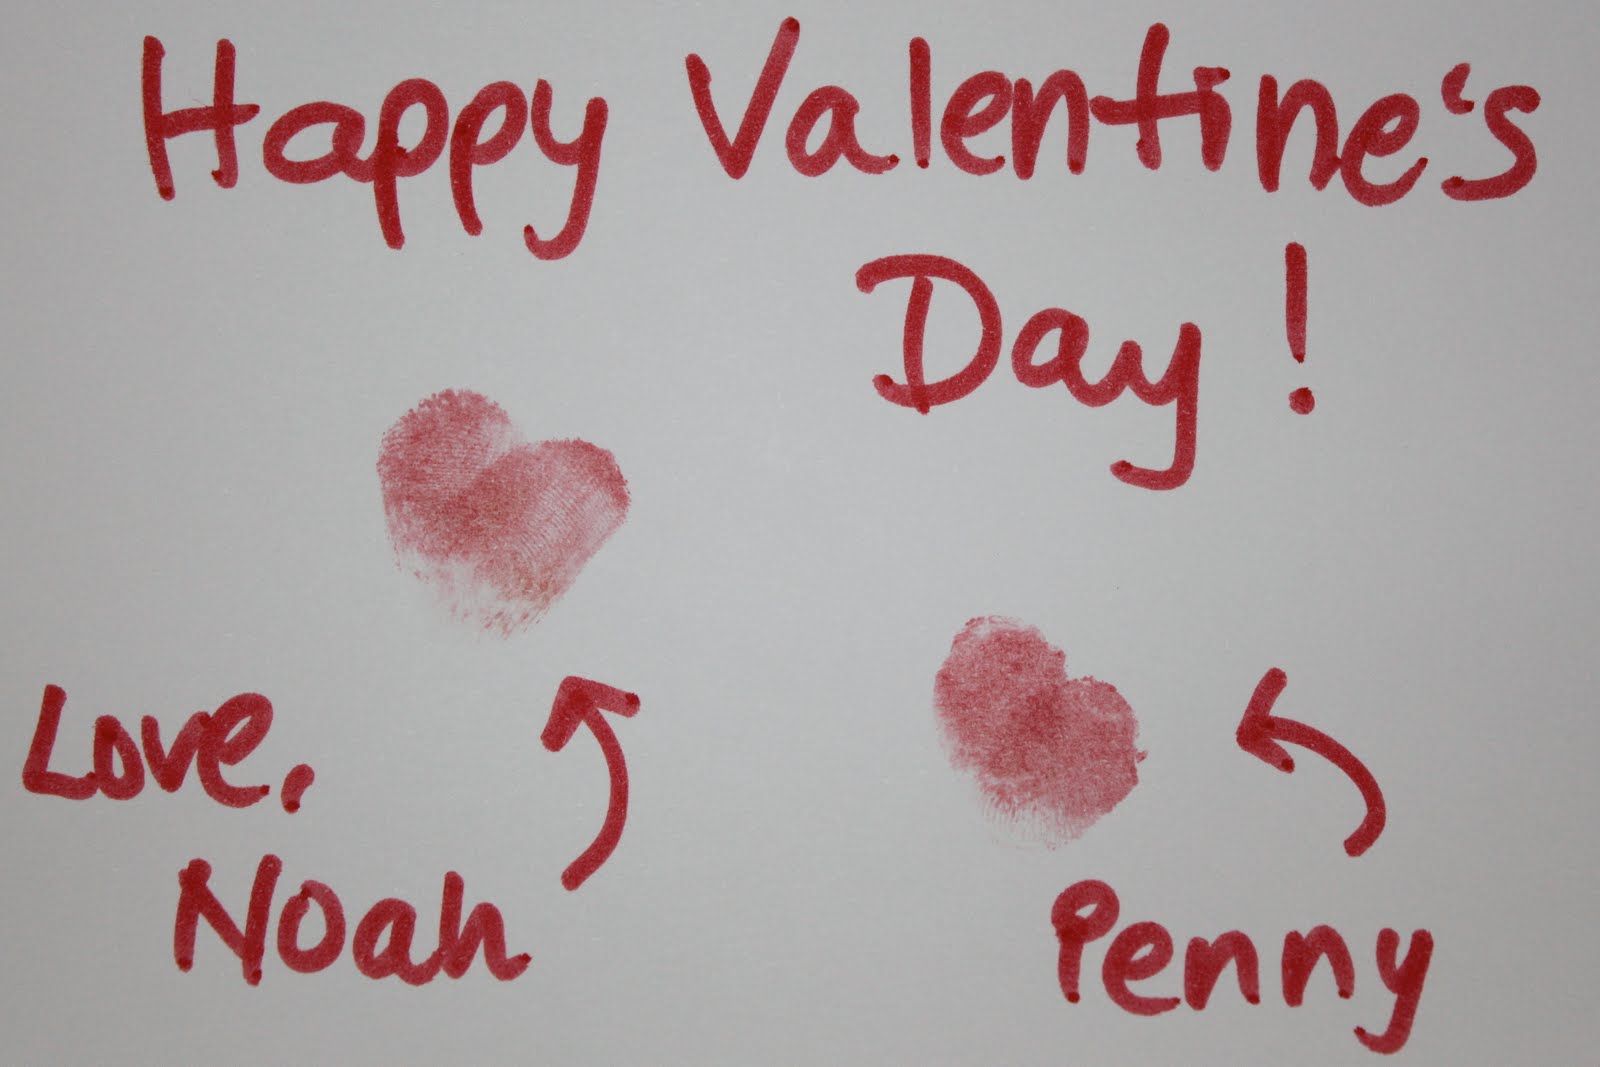 Happy Valentine's
Day!
Love,
Noah
Penny